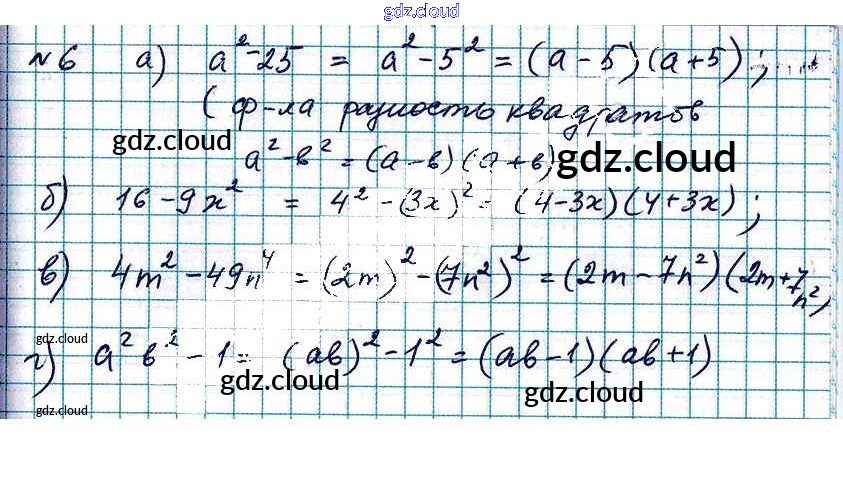 gdz.cloud
№6 а) a² - 25 = a² - 5² = (a - 5)(a + 5);
(ф-ла разность квадратов
gdz.cloud
a² - в² = (a - в)(a + в) gdz.cloud
б) 16 - 9x² = 4² - (3x)² = (4 - 3x)(4 + 3x);
в) 4m² - 49n⁴ = (2m)² - (7n²)² = (2m - 7n²)(2m + 7n²),
gdz.cloud
г) a²в² - 1 = (aв)² - 1² = (aв - 1)(aв + 1)
gdz.cloud gdz.cloud
gdz.cloud